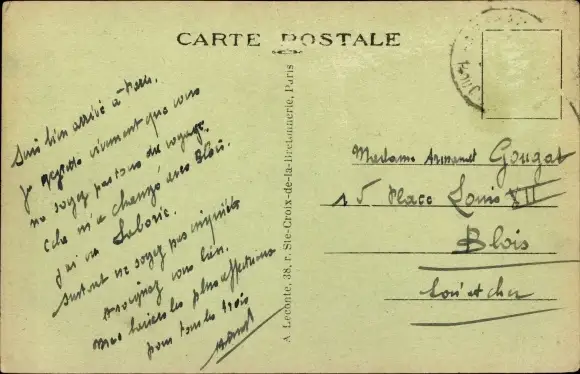 CARTE POSTALE
Suis bien arrivé à Paris.
Je regrette vivement que vous
ne soyez pas tous du voyage.
Cela m'a changé avec Blois.
J'ai vu Laborie.
Surtout ne soyez pas inquiets
Soignez vous bien.
Mes baisers les plus affectueux
pour tous les trois
A Leconte, 38, r. Ste-Croix-de-la-Bretonnerie, Paris
Madame Armand Gougat
15 Place Louis XII
Blois
Loir et cher